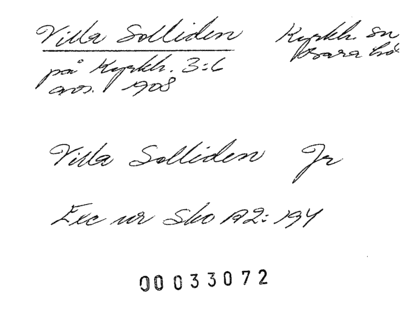 Villa Solliden Kyrkh. sn
på Kyrkh. 3:6 Bara hd
avs. 1908
Villa Solliden Jr
Exc ur Sko A2:194
00033072